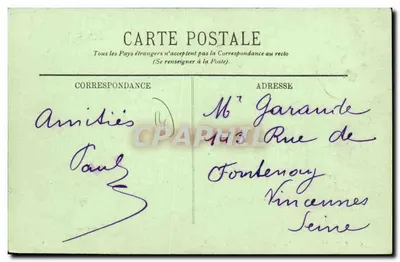 CARTE POSTALE
Tous les Pays étrangers n'acceptent pas la Correspondance au recto
(Se renseigner à la Poste).
CORRESPONDANCE
ADRESSE
Amitiés
Paul
Mr Garande
143 Rue de
Fontenay
Vincennes
Seine
CPARAMA